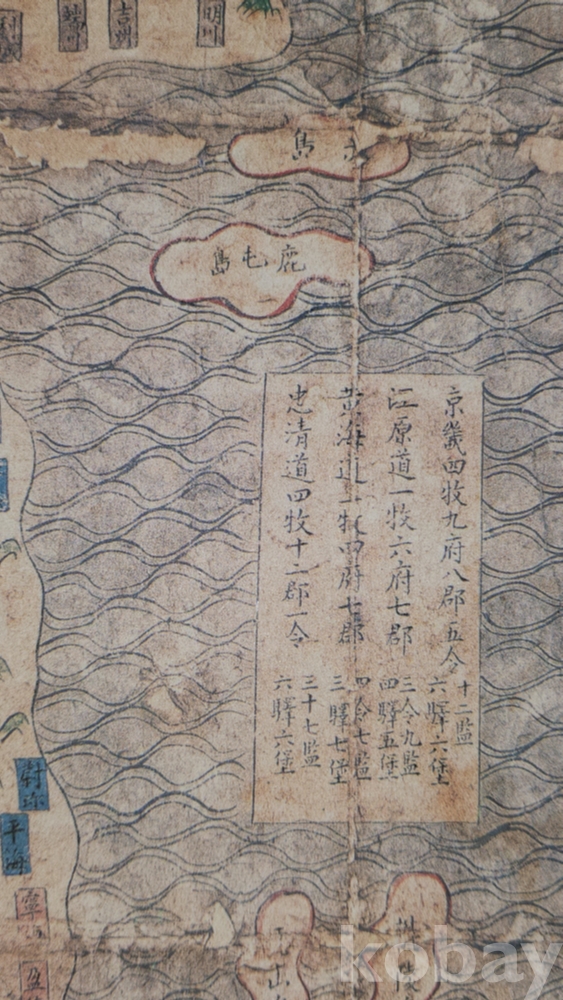 明川
吉州
端川
利
島
鹿屯島
京畿四牧九府八郡五令
十二監
六驛六堡
江原道一牧六府七郡
三令九監
四驛五堡
黃海道一牧四府七郡
四令七監
三驛七堡
忠清道四牧十二郡一令
三十七監
六驛六堡
蔚珍
平海
寧海
盈
于山
陵
kobay